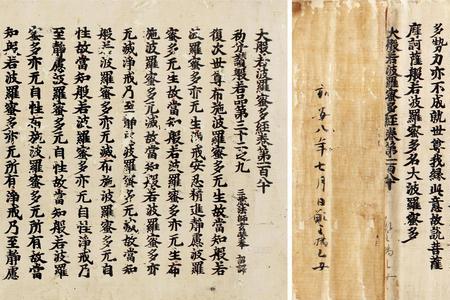 多勢力亦不成就世尊我緣此意故說菩薩
摩訶薩般若波羅蜜多名大波羅蜜多
大般若波羅蜜多經卷第一百八十
八年七月日
大般若波羅蜜多經卷第一百八十
初分讚般若品第三十二之九
三藏法師玄奘奉 詔譯
復次世尊布施波羅蜜多无生故當知般若
波羅蜜多亦无生淨戒安忍精進靜慮般羅
蜜多无生故當知般若波羅蜜多亦无生布
施波羅蜜多无滅故當知般若波羅蜜多亦
无滅淨戒乃至靜慮波羅蜜多无滅故當知
般若波羅蜜多亦无滅布施波羅蜜多无自
性故當知般若波羅蜜多亦无自性淨戒乃
至靜慮波羅蜜多无自性故當知般若波羅
蜜多亦无自性布施波羅蜜多无所有故當
知般若波羅蜜多亦无所有淨戒乃至靜慮